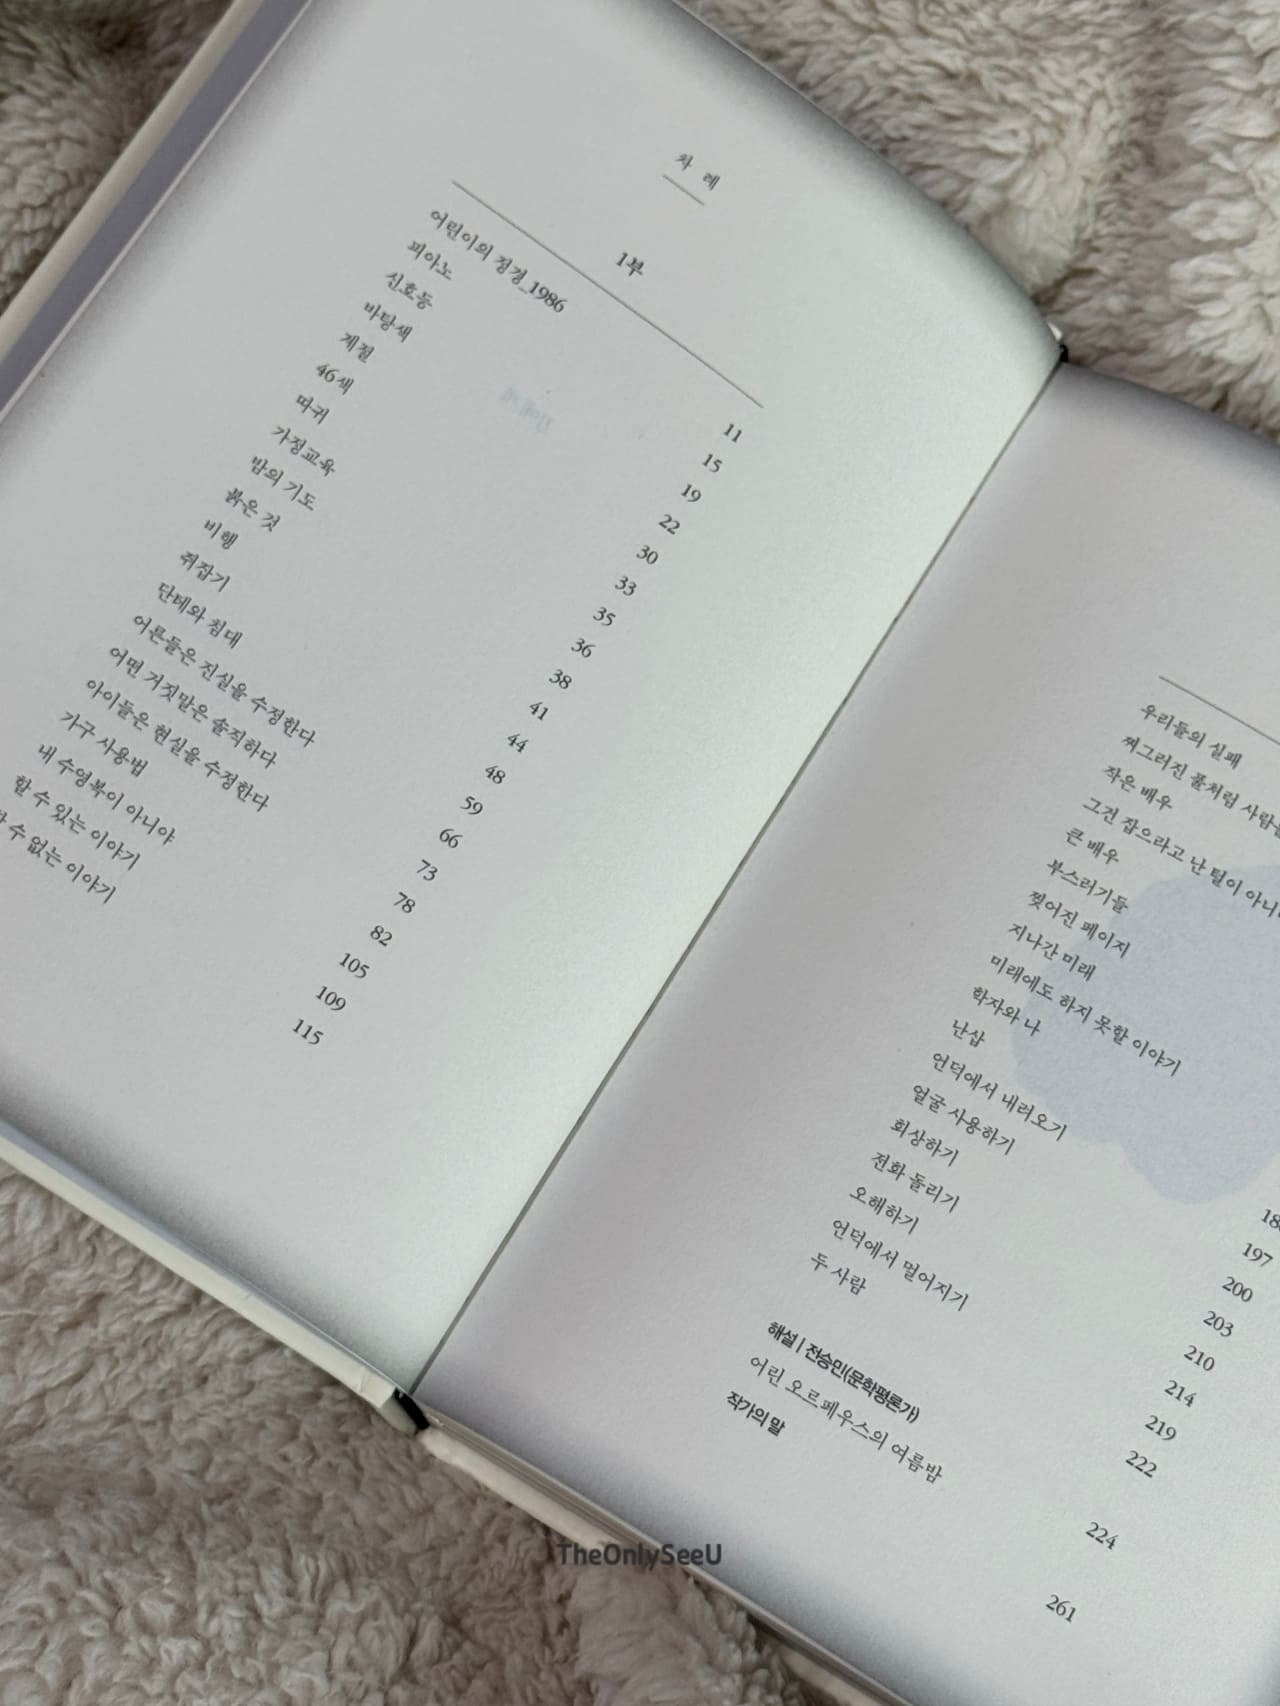 차 례
1부
어린이의 정경_1986 11
피아노 15
신호등 19
바탕색 22
계절 30
46색 33
따귀 35
가정교육 36
밤의 기도 38
붉은 것 41
비행 44
쥐잡기 48
단테와 침대 59
어른들은 진실을 수정한다 66
어떤 거짓말은 솔직하다 73
아이들은 현실을 수정한다 78
가구 사용법 82
내 수영복이 아니야 105
할 수 있는 이야기 109
수 없는 이야기 115
우리들의 실패
찌그러진 풀처럼
작은 배우
그건 잡으라고 난 털이
큰 배우
부스러기들
찢어진 페이지
지나간 미래
미래에도 하지 못할 이야기
학자와 나
난삽
언덕에서 내려오기 197
얼굴 사용하기 200
회상하기 203
전화 돌리기 210
오해하기 214
언덕에서 멀어지기 219
두 사람 222
해설 | 전승민(문학평론가)
어린 오르페우스의 여름밤 224
작가의 말 261
TheOnlySeeU